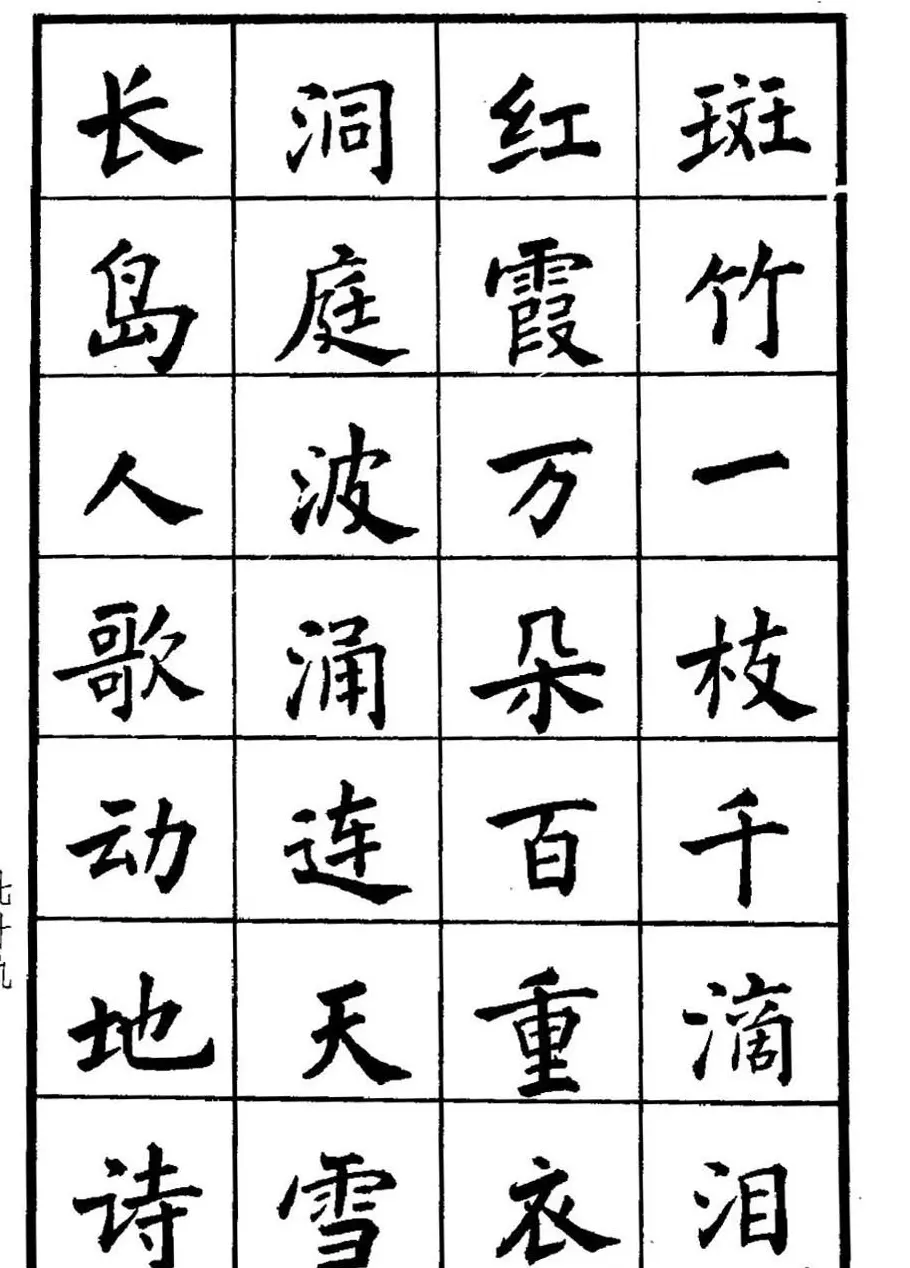 斑竹一枝千滴泪
红霞万朵百重衣
洞庭波涌连天雪
长岛人歌动地诗
七十九